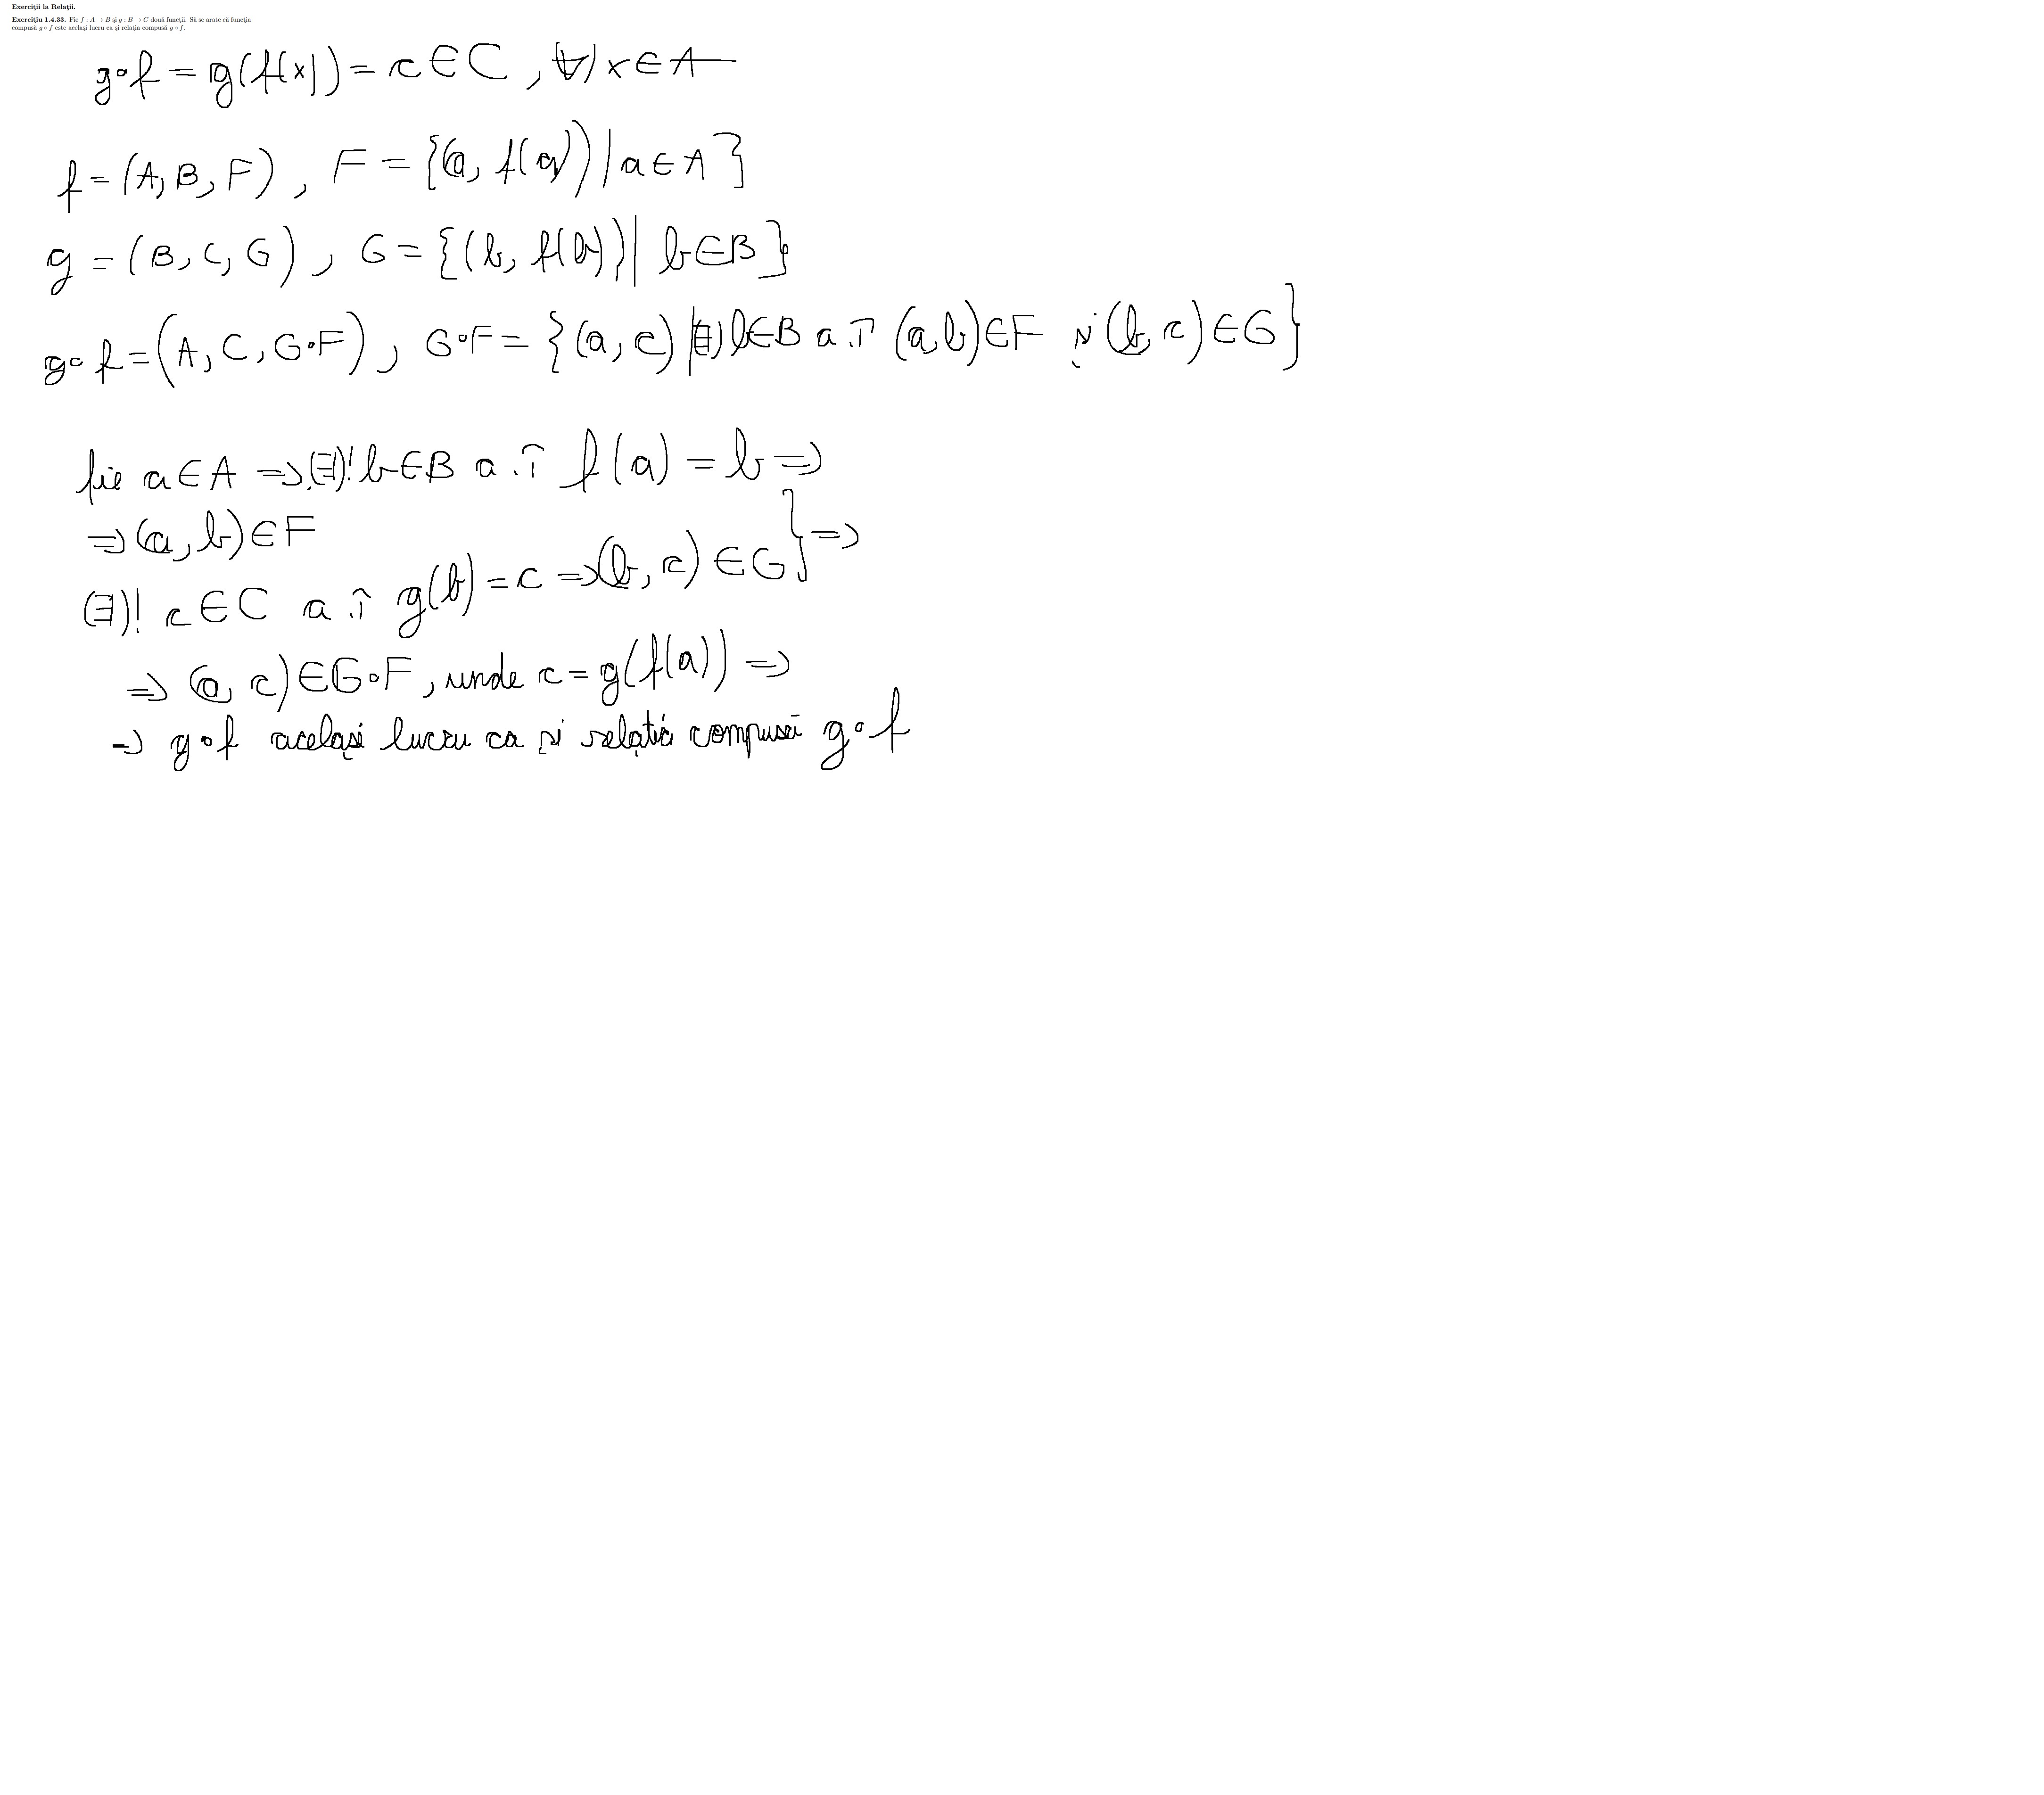 Exerciţii la Relaţii.
Exerciţiu 1.4.33. Fie f : A → B şi g : B → C două funcţii. Să se arate că funcţia
compusă g ∘ f este acelaşi lucru ca şi relaţia compusă g ∘ f.
g∘f = g(f(x)) = c ∈ C , (∀) x ∈ A
f = (A, B, F) , F = {(a, f(a)) | a ∈ A }
g = (B, C, G) , G = {(b, f(b)) | b ∈ B }
g∘f = (A, C, G∘F) , G∘F = {(a, c) | (∃) b ∈ B a.î (a, b) ∈ F și (b, c) ∈ G }
fie a ∈ A => (∃)! b ∈ B a.î f(a) = b =>
=> (a, b) ∈ F
(∃)! c ∈ C a.î g(b) = c => (b, c) ∈ G } =>
=> (a, c) ∈ G∘F , unde c = g(f(a)) =>
=> g∘f același lucru ca și relația compusă g∘f